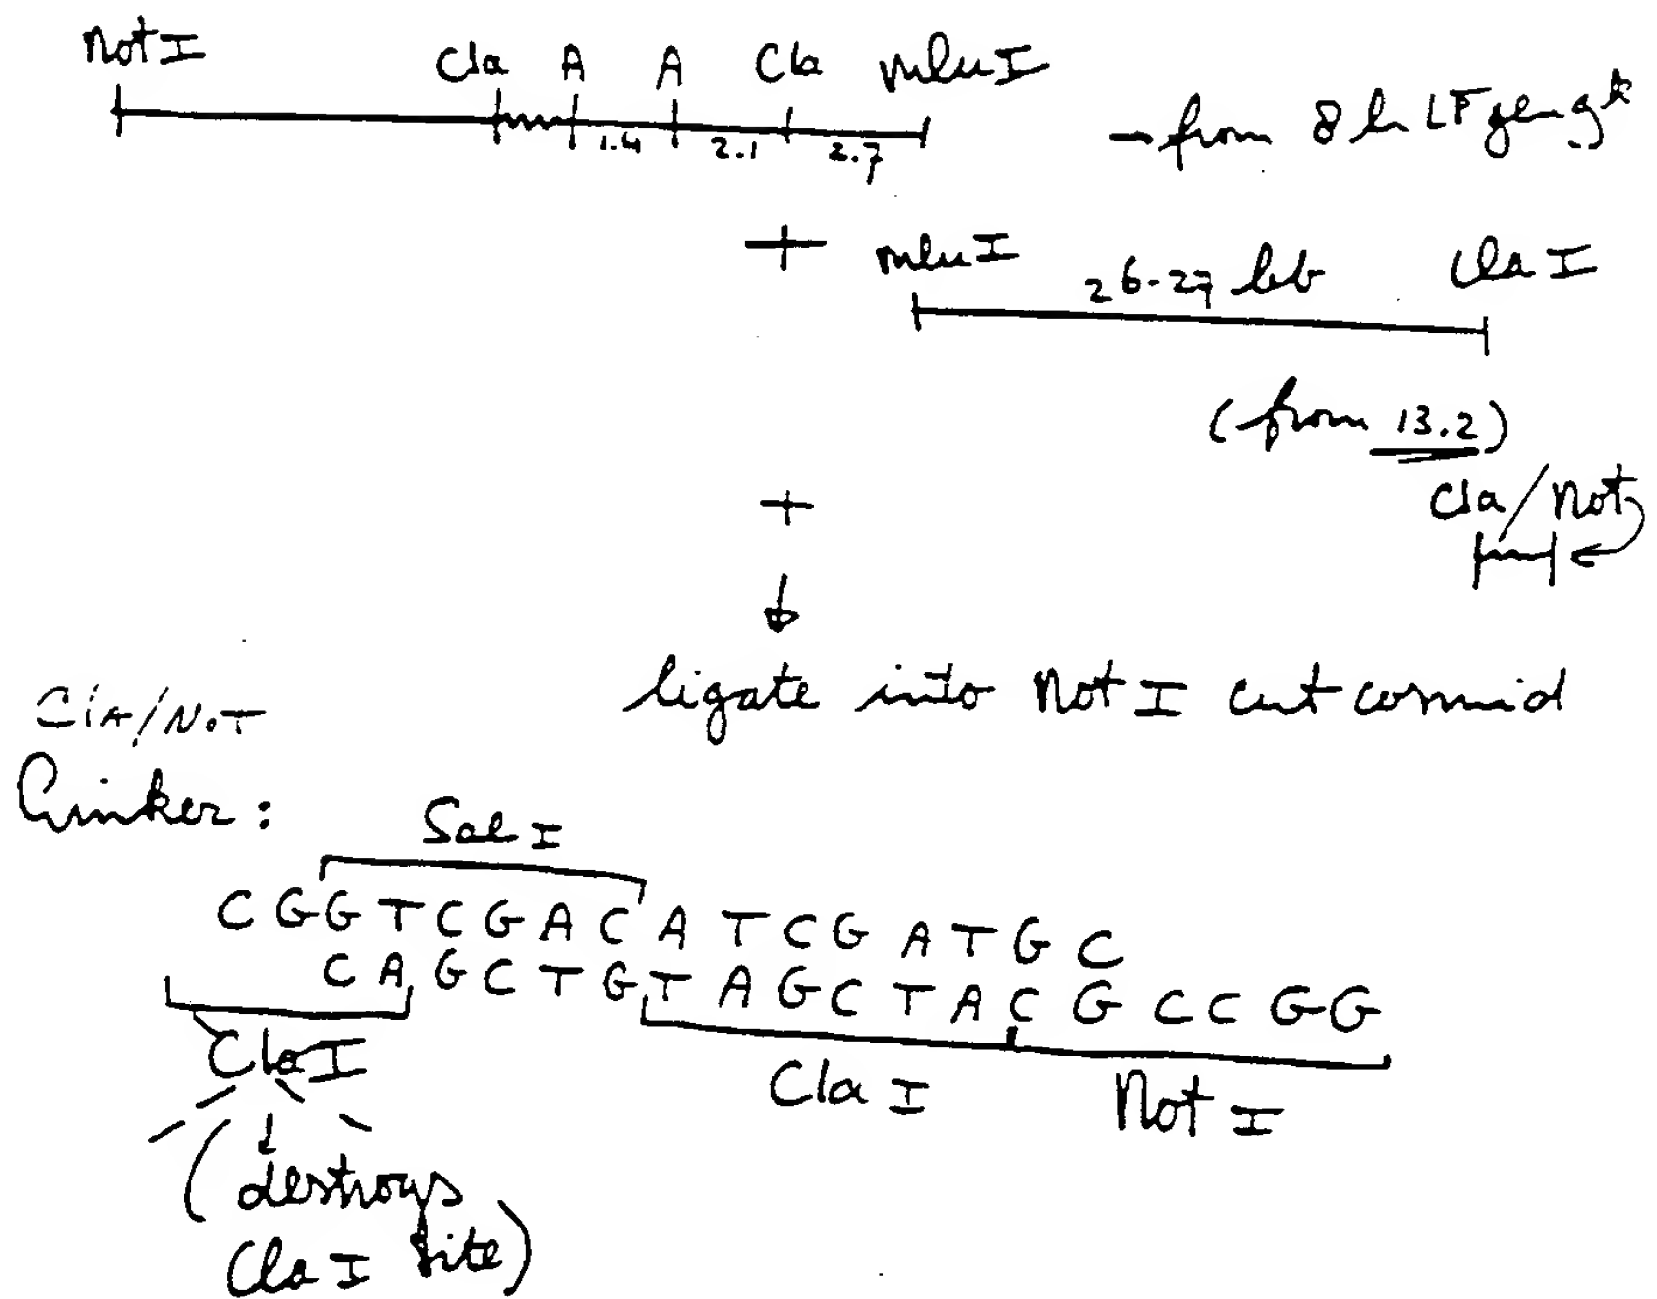 Not I Cla A A Cla mluI
1.4 2.1 2.7
- from 8
+ mluI 26-27 Cla I
(from 13.2)
+ Cla/Not
ligate into Not I cut cosmid
Cla/Not
Linker:
Sal I
C G G T C G A C A T C G A T G C
C A G C T G T A G C T A C G C C G G
Cla I
Cla I Not I
(destroys
Cla I site)